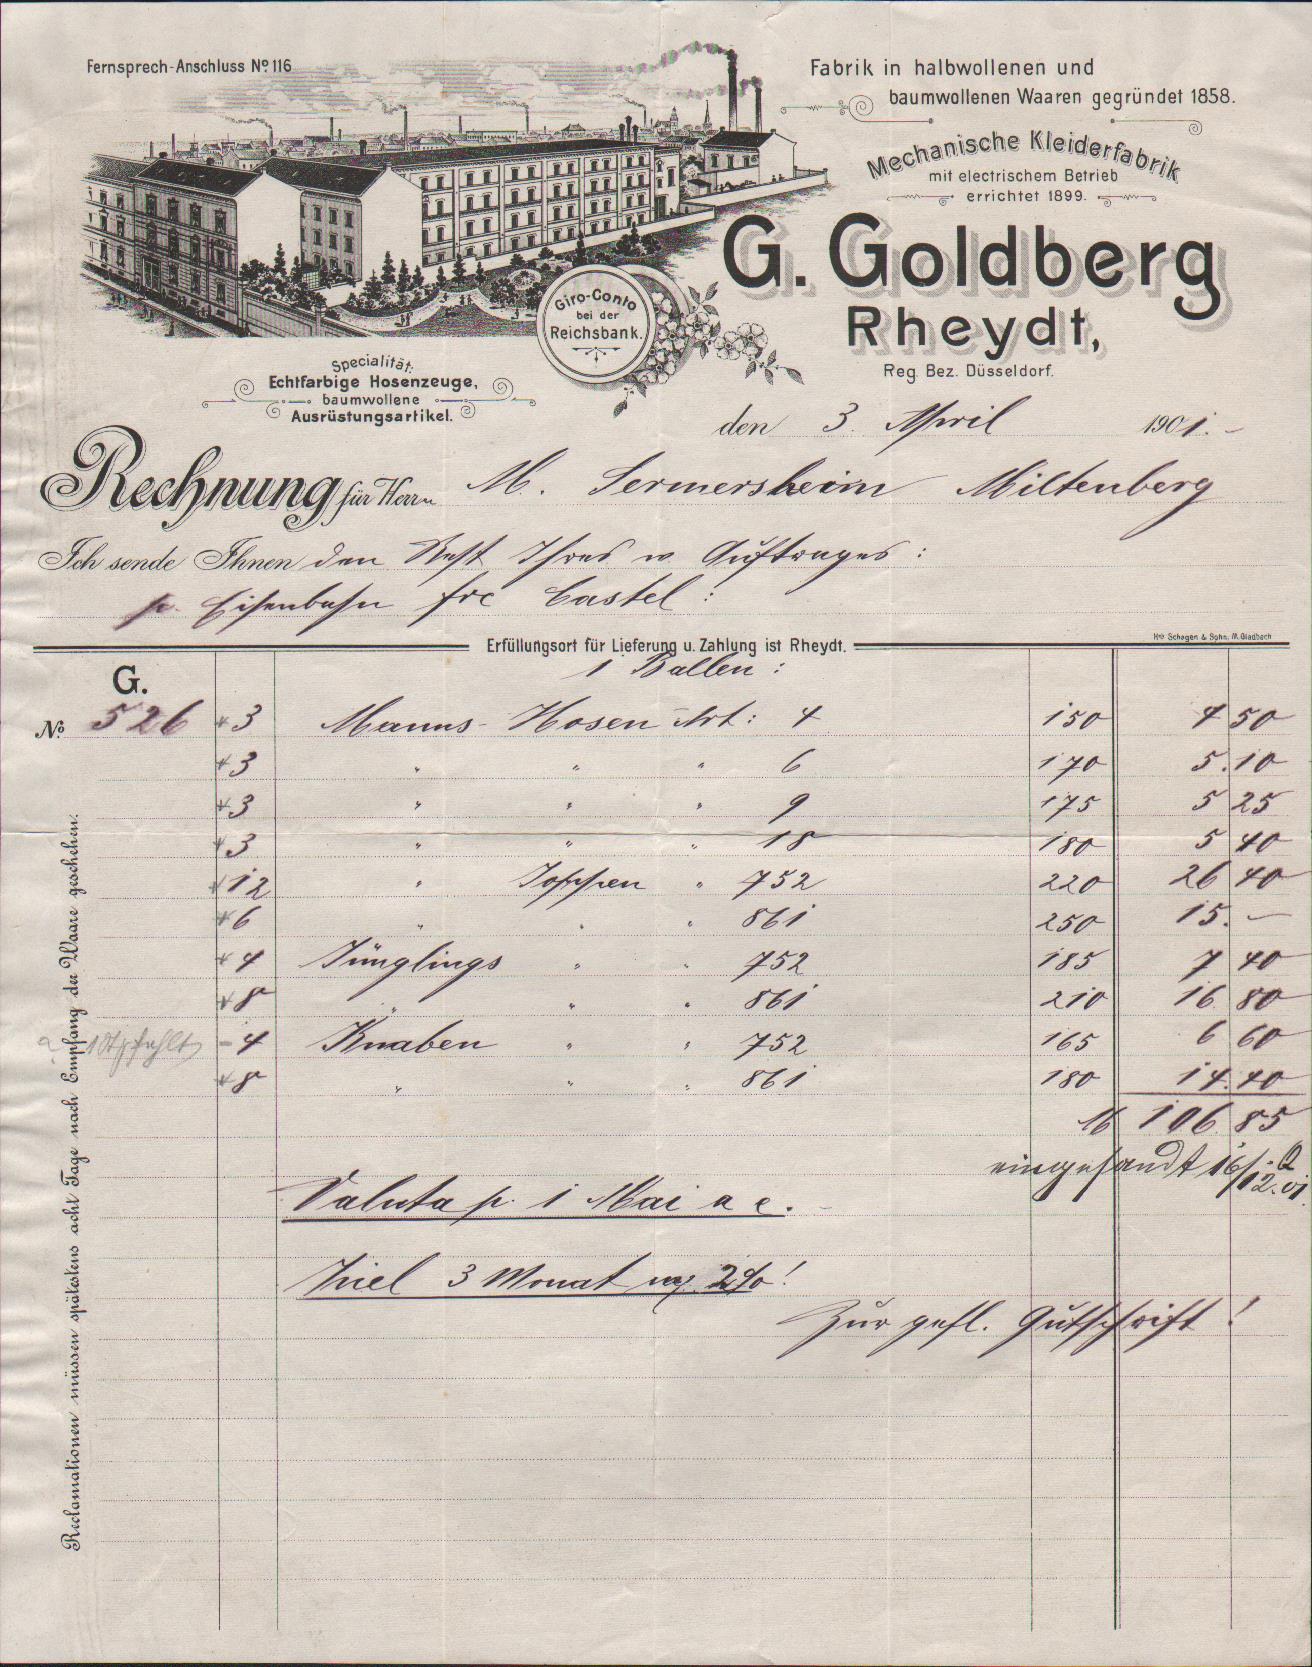 Fernsprech-Anschluss No 116
Fabrik in halbwollenen und
baumwollenen Waaren gegründet 1858.
Mechanische Kleiderfabrik
mit electrischem Betrieb
errichtet 1899.
G. Goldberg
Rheydt,
Reg. Bez. Düsseldorf.
Giro-Conto
bei der
Reichsbank.
Specialität:
Echtfarbige Hosenzeuge,
baumwollene
Ausrüstungsartikel.
den 3. April 1901.-
Rechnung für Herrn M. Sermersheim Miltenberg
Ich sende Ihnen den Rest Ihres w Auftrages :
p. Eisenbahn frc Castel :
Hub. Schagen & Sohn, M. Gladbach
Erfüllungsort für Lieferung u. Zahlung ist Rheydt.
1 Ballen :
G.
No 526 3 Manns-Hosen Art: 4 150 4 50
3 " " " 6 170 5.10
3 " " " 9 175 5 25
3 " " " 18 180 5 40
12 " Joppen " 752 220 26 40
6 " " " 861 250 15.-
4 Jünglings " " 752 185 7 40
8 " " " 861 210 16 80
4 Knaben " " 752 165 6 60
8 " " " 861 180 14.40
M 106 85
eingesandt 16/12.01
Valuta p. 1 Mai a c.-
Ziel 3 Monat 2%!
Zur gefl. Gutschrift!
Reclamationen müssen spätestens acht Tage nach Empfang der Waare geschehen.